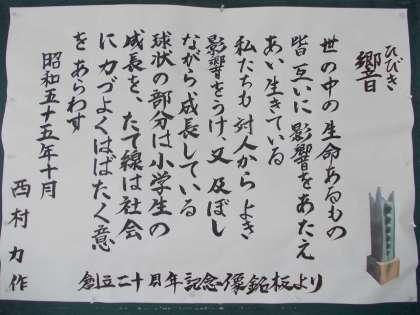 ひびき
響
世の中の生命あるもの
皆互いに影響をあたえ
あい生きている
私たちも対人からよき
影響をうけ、又及ぼし
ながら成長している
球状の部分は小学生の
成長を、たて線は社会
に力づよくはばたく意
をあらわす
昭和五十五年十月
西村力作
創立二十周年記念像銘板より